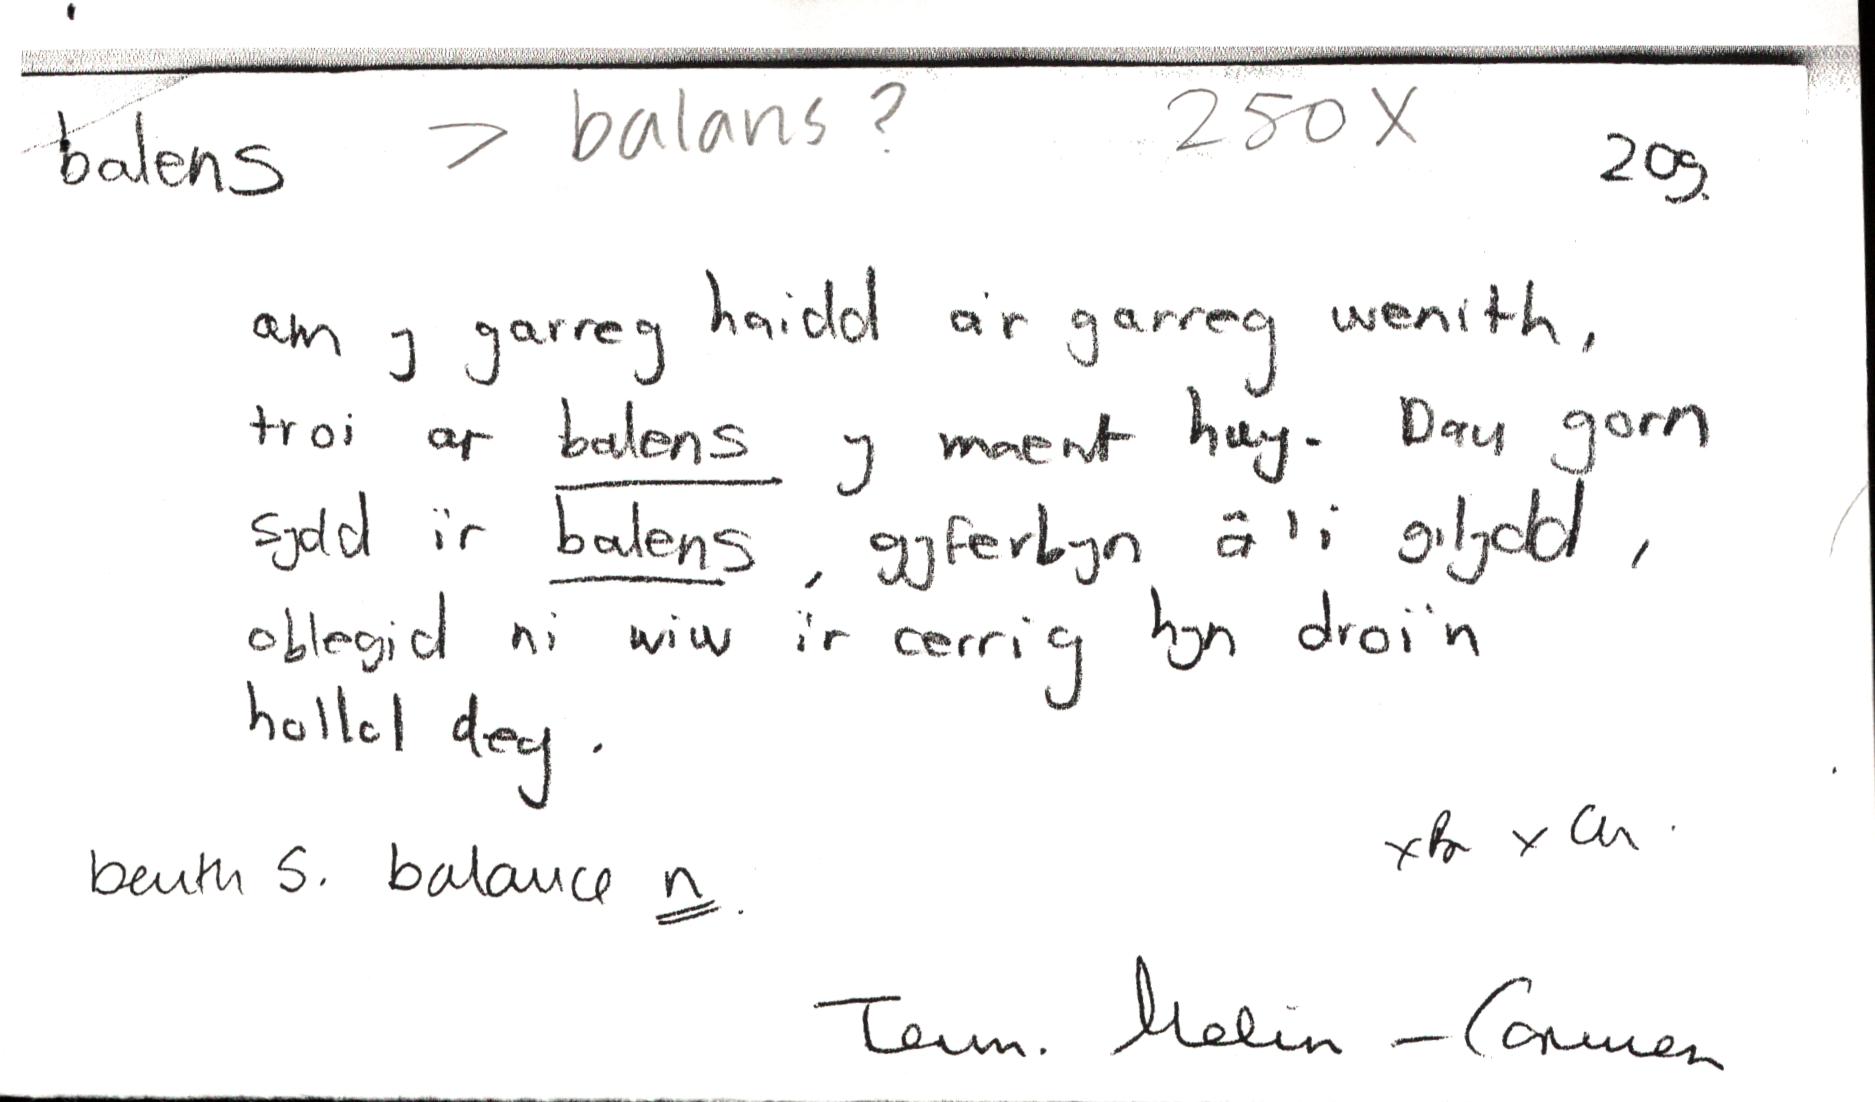 balens > balans? 250X 20g.
am y garreg haidd a'r garreg wenith,
troi ar balens y maent hwy. Dau gorn
sydd i'r balens, gyferbyn â'i gilydd,
oblegid ni wiw i'r cerrig hyn droi'n
hollol deg.
x x
benth S. balance n.
Term. Melin –